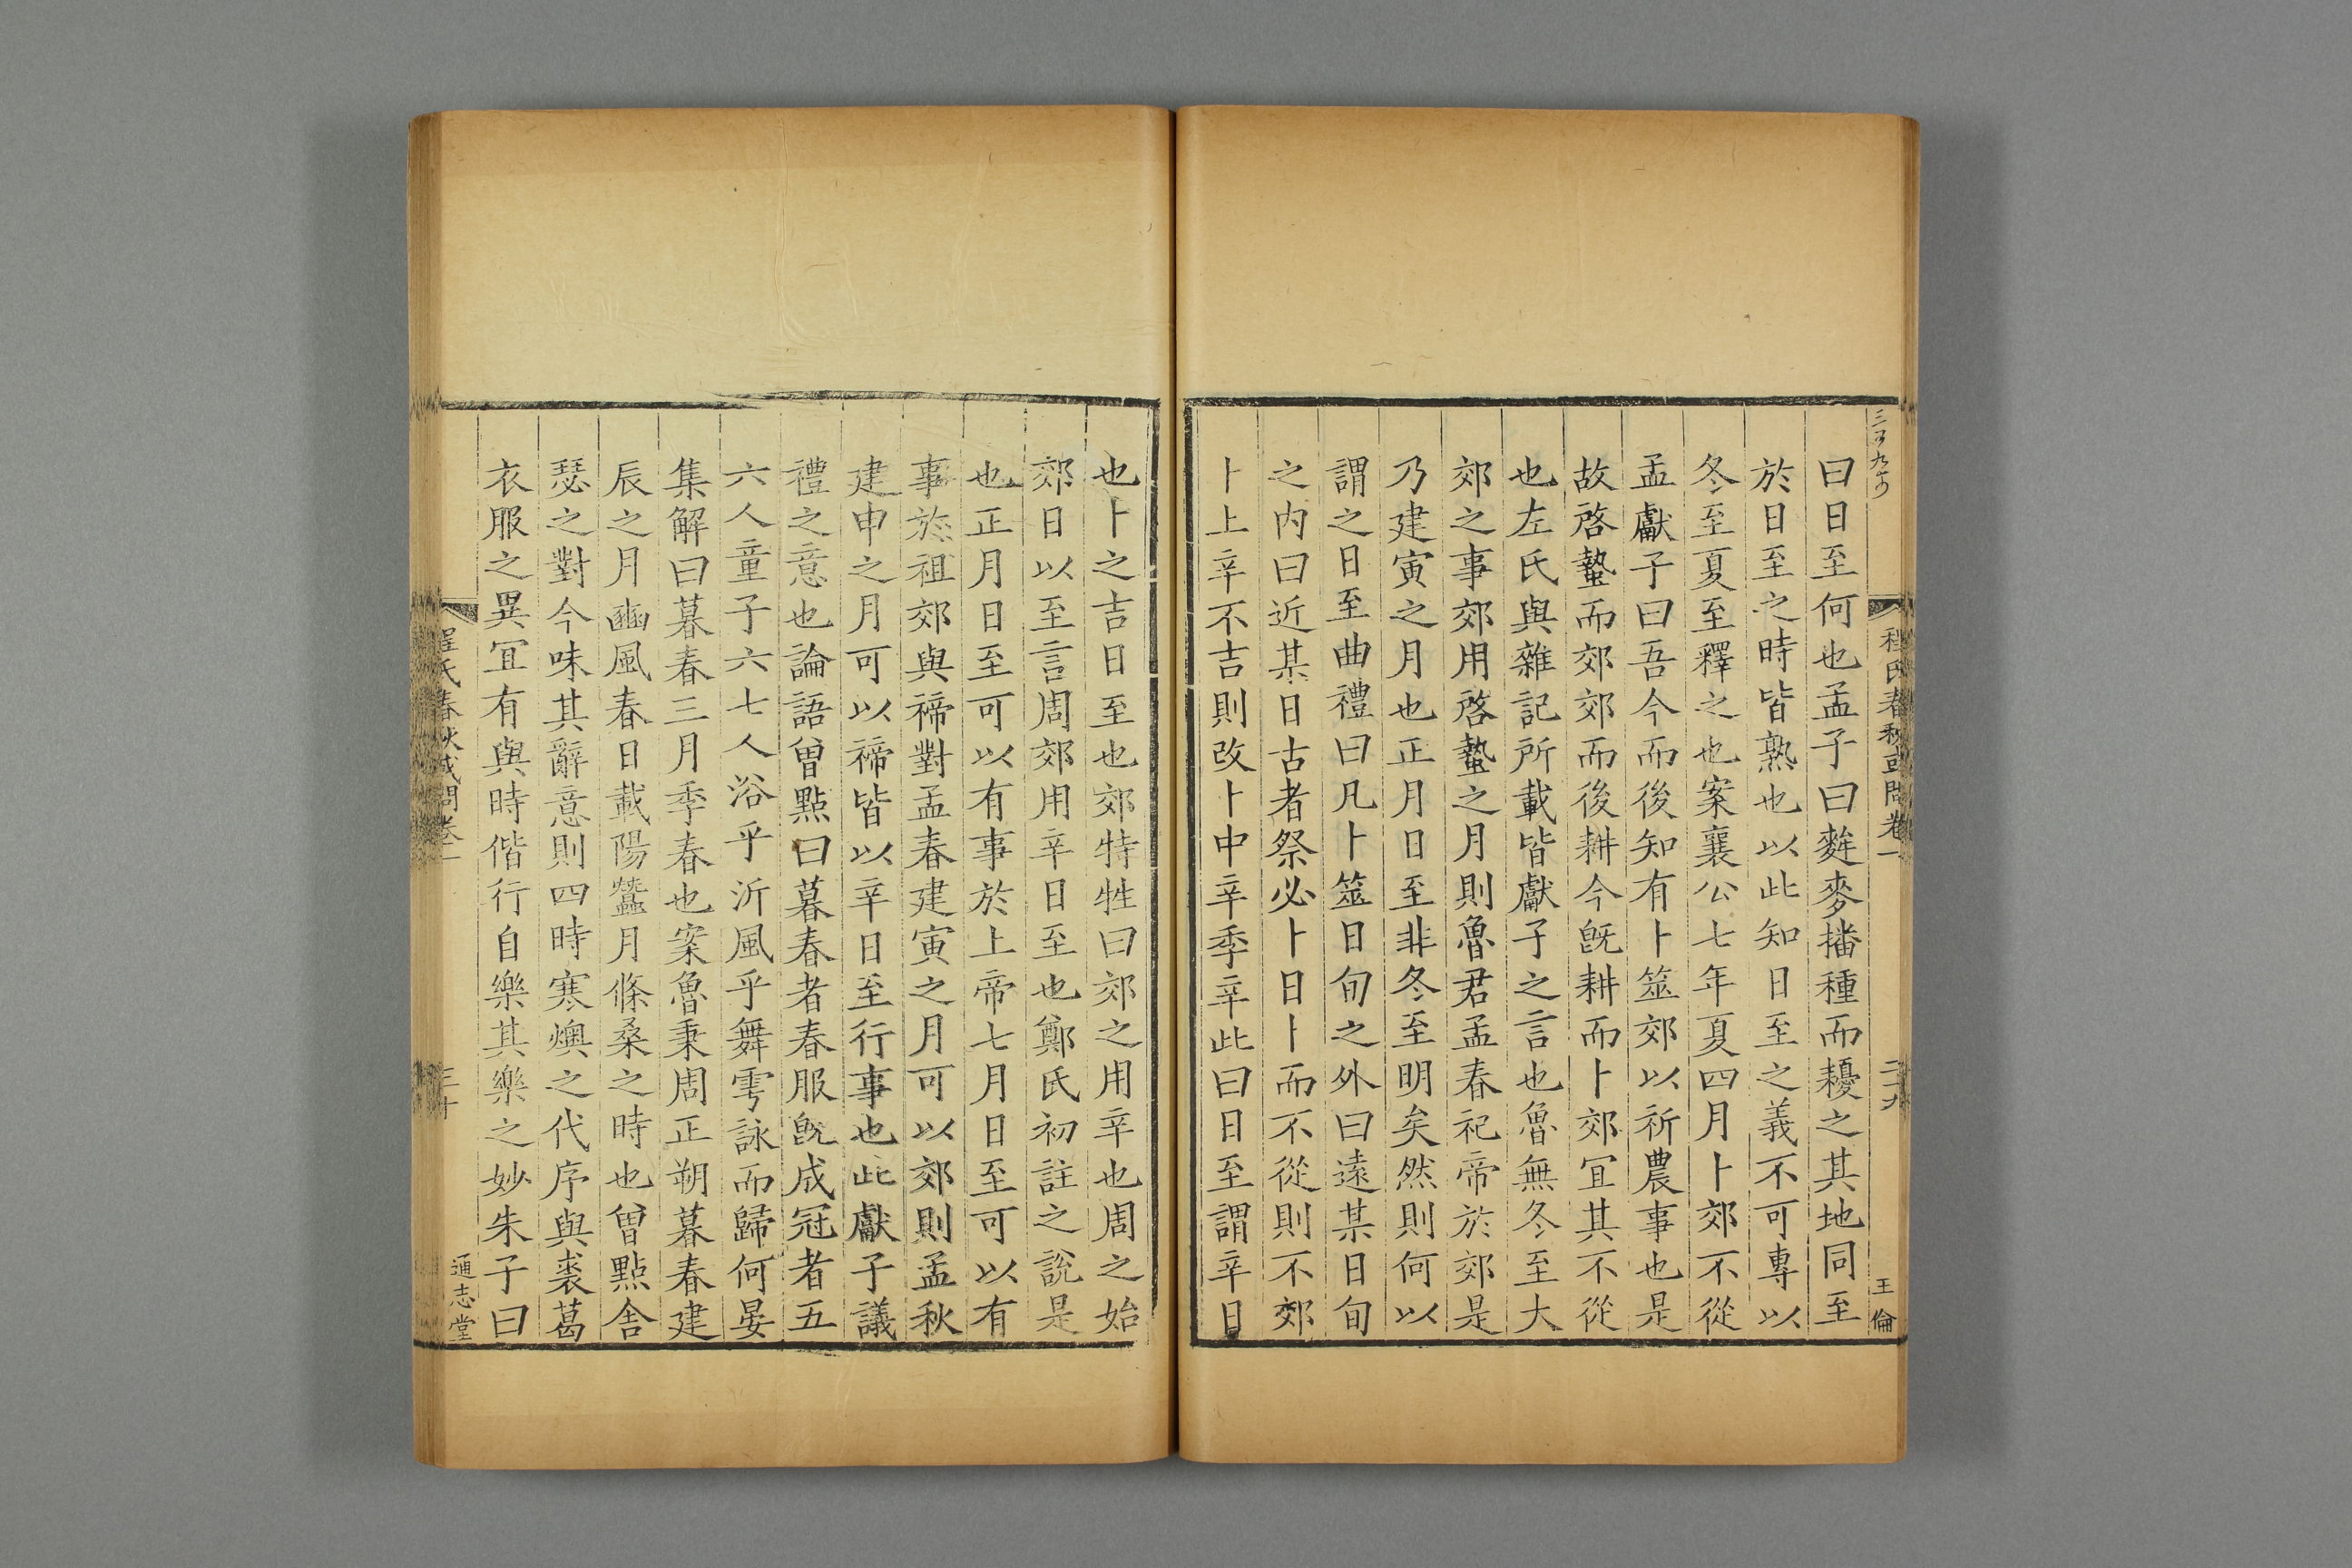 程氏春秋或問卷一
二十九
王倫
曰日至何也孟子曰麰麥播種而耰之其地同至
於日至之時皆熟也以此知日至之義不可專以
冬至夏至釋之也案襄公七年夏四月卜郊不從
孟獻子曰吾今而後知有卜筮郊以祈農事也是
故啓蟄而郊郊而後耕今旣耕而卜郊宜其不從
也左氏與雜記所載皆獻子之言也魯無冬至大
郊之事郊用啓蟄之月則魯君孟春祀帝於郊是
乃建寅之月也正月日至非冬至明矣然則何以
謂之日至曲禮曰凡卜筮日旬之外曰遠某日旬
之內曰近某日古者祭必卜日卜而不從則不郊
卜上辛不吉則改卜中辛季辛此曰日至謂辛日
也卜之吉日至也郊特牲曰郊之用辛也周之始
郊日以至言周郊用辛日至也鄭氏初註之說是
也正月日至可以有事於上帝七月日至可以有
事於祖郊與禘對孟春建寅之月可以郊則孟秋
建申之月可以禘皆以辛日至行事也此獻子議
禮之意也論語曾點曰暮春者春服旣成冠者五
六人童子六七人浴乎沂風乎舞雩詠而歸何晏
集解曰暮春三月季春也案魯秉周正朔暮春建
辰之月豳風春日載陽蠶月條桑之時也曾點舍
瑟之對今味其辭意則四時寒燠之代序與裘葛
衣服之異宜有與時偕行自樂其樂之妙朱子曰
程氏春秋或問卷一
三十
通志堂